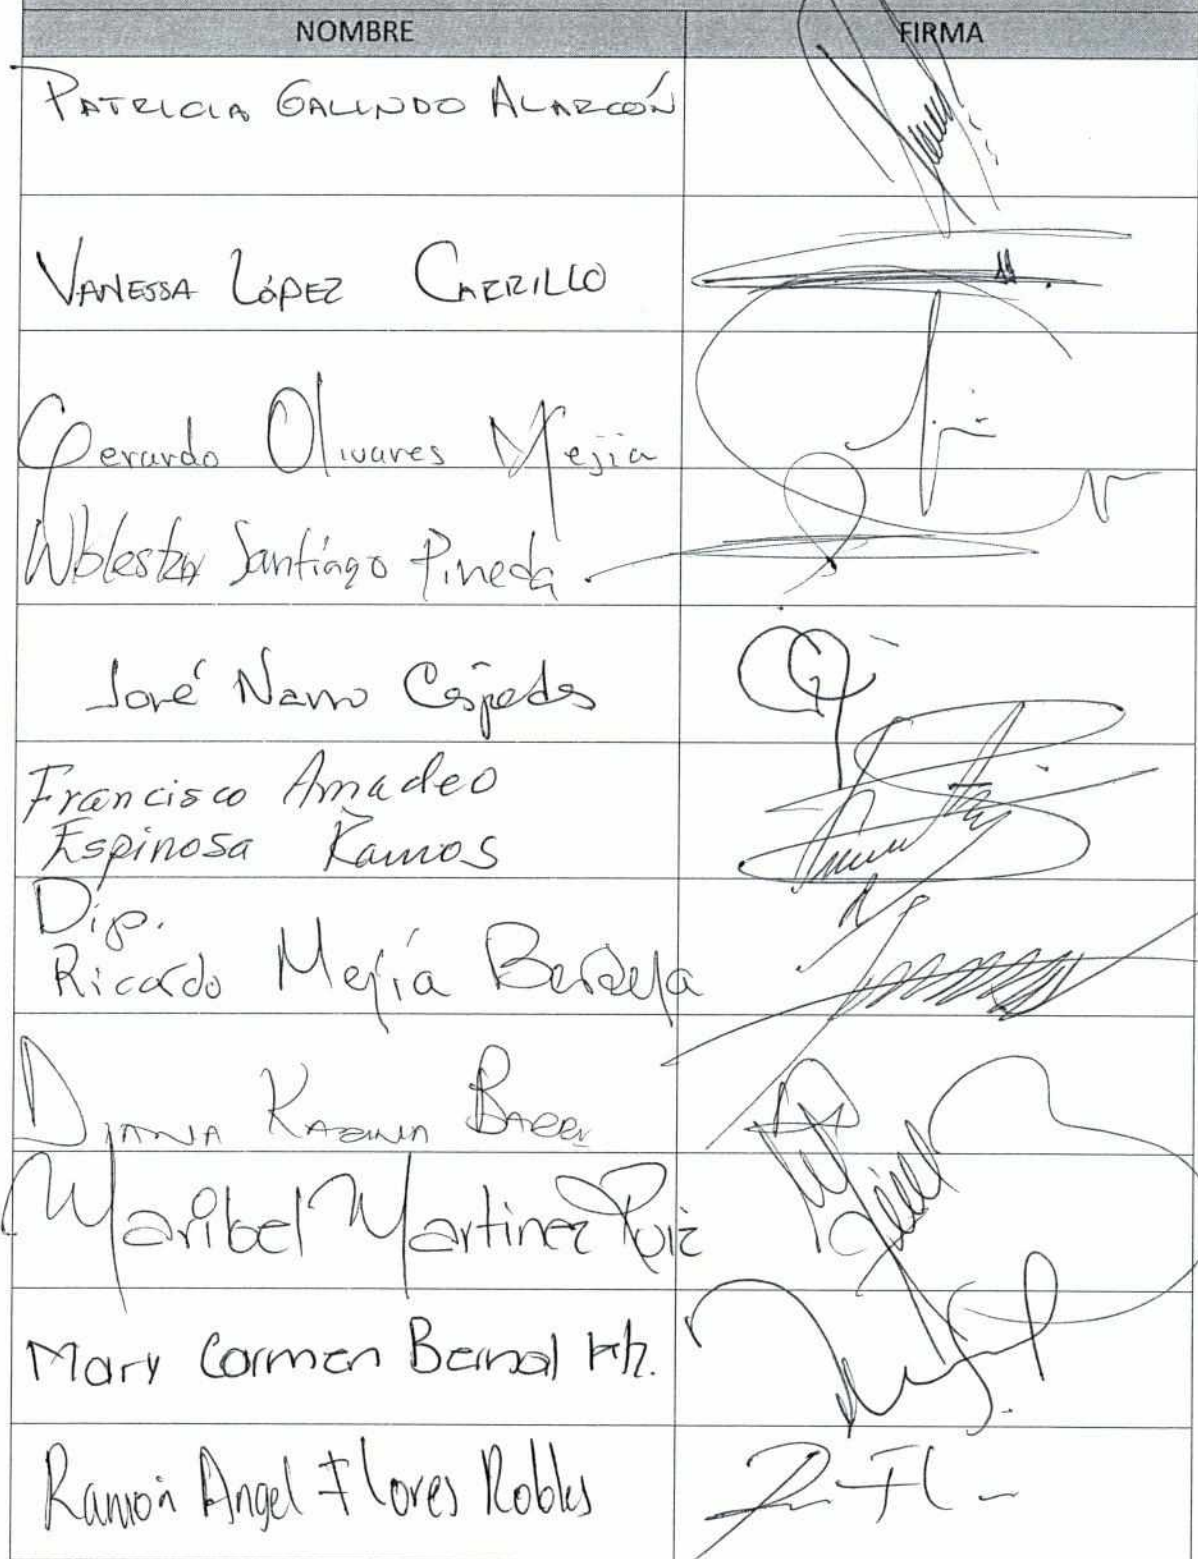 NOMBRE FIRMA
PATRICIA GALINDO ALARCÓN
VANESSA LÓPEZ CARRILLO
Gerardo Olivares Mejia
Santiago Pineda
José Narro Céspedes
Francisco Amadeo
Espinosa Ramos
Dip.
Ricardo Mejía Berdeja
DIANA KARINA
Maribel Martinez Ruiz
Mary Carmen Bernal
Ramón Angel Flores Robles